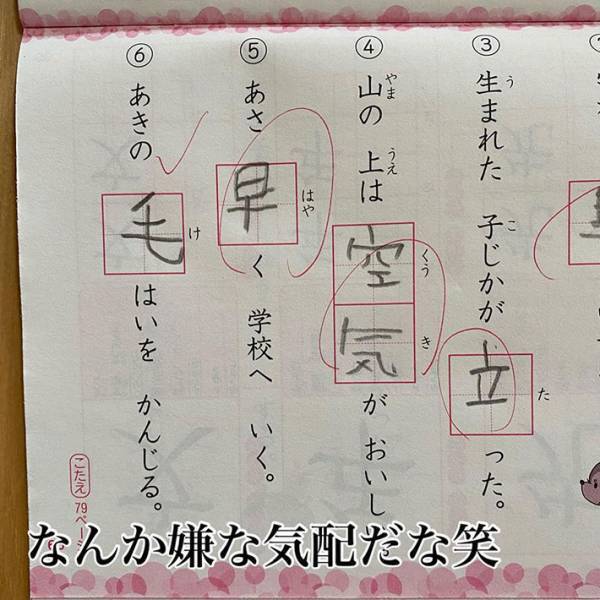 ③ 生まれた 子じかが 立った。
う こ た
④ 山の 上は 空気が おいし
やま うえ くう き
⑤ あさ 早く 学校へ いく。
はや
⑥ あきの 毛はいを かんじる。
け
こたえ 79ページ
なんか嫌な気配だな笑